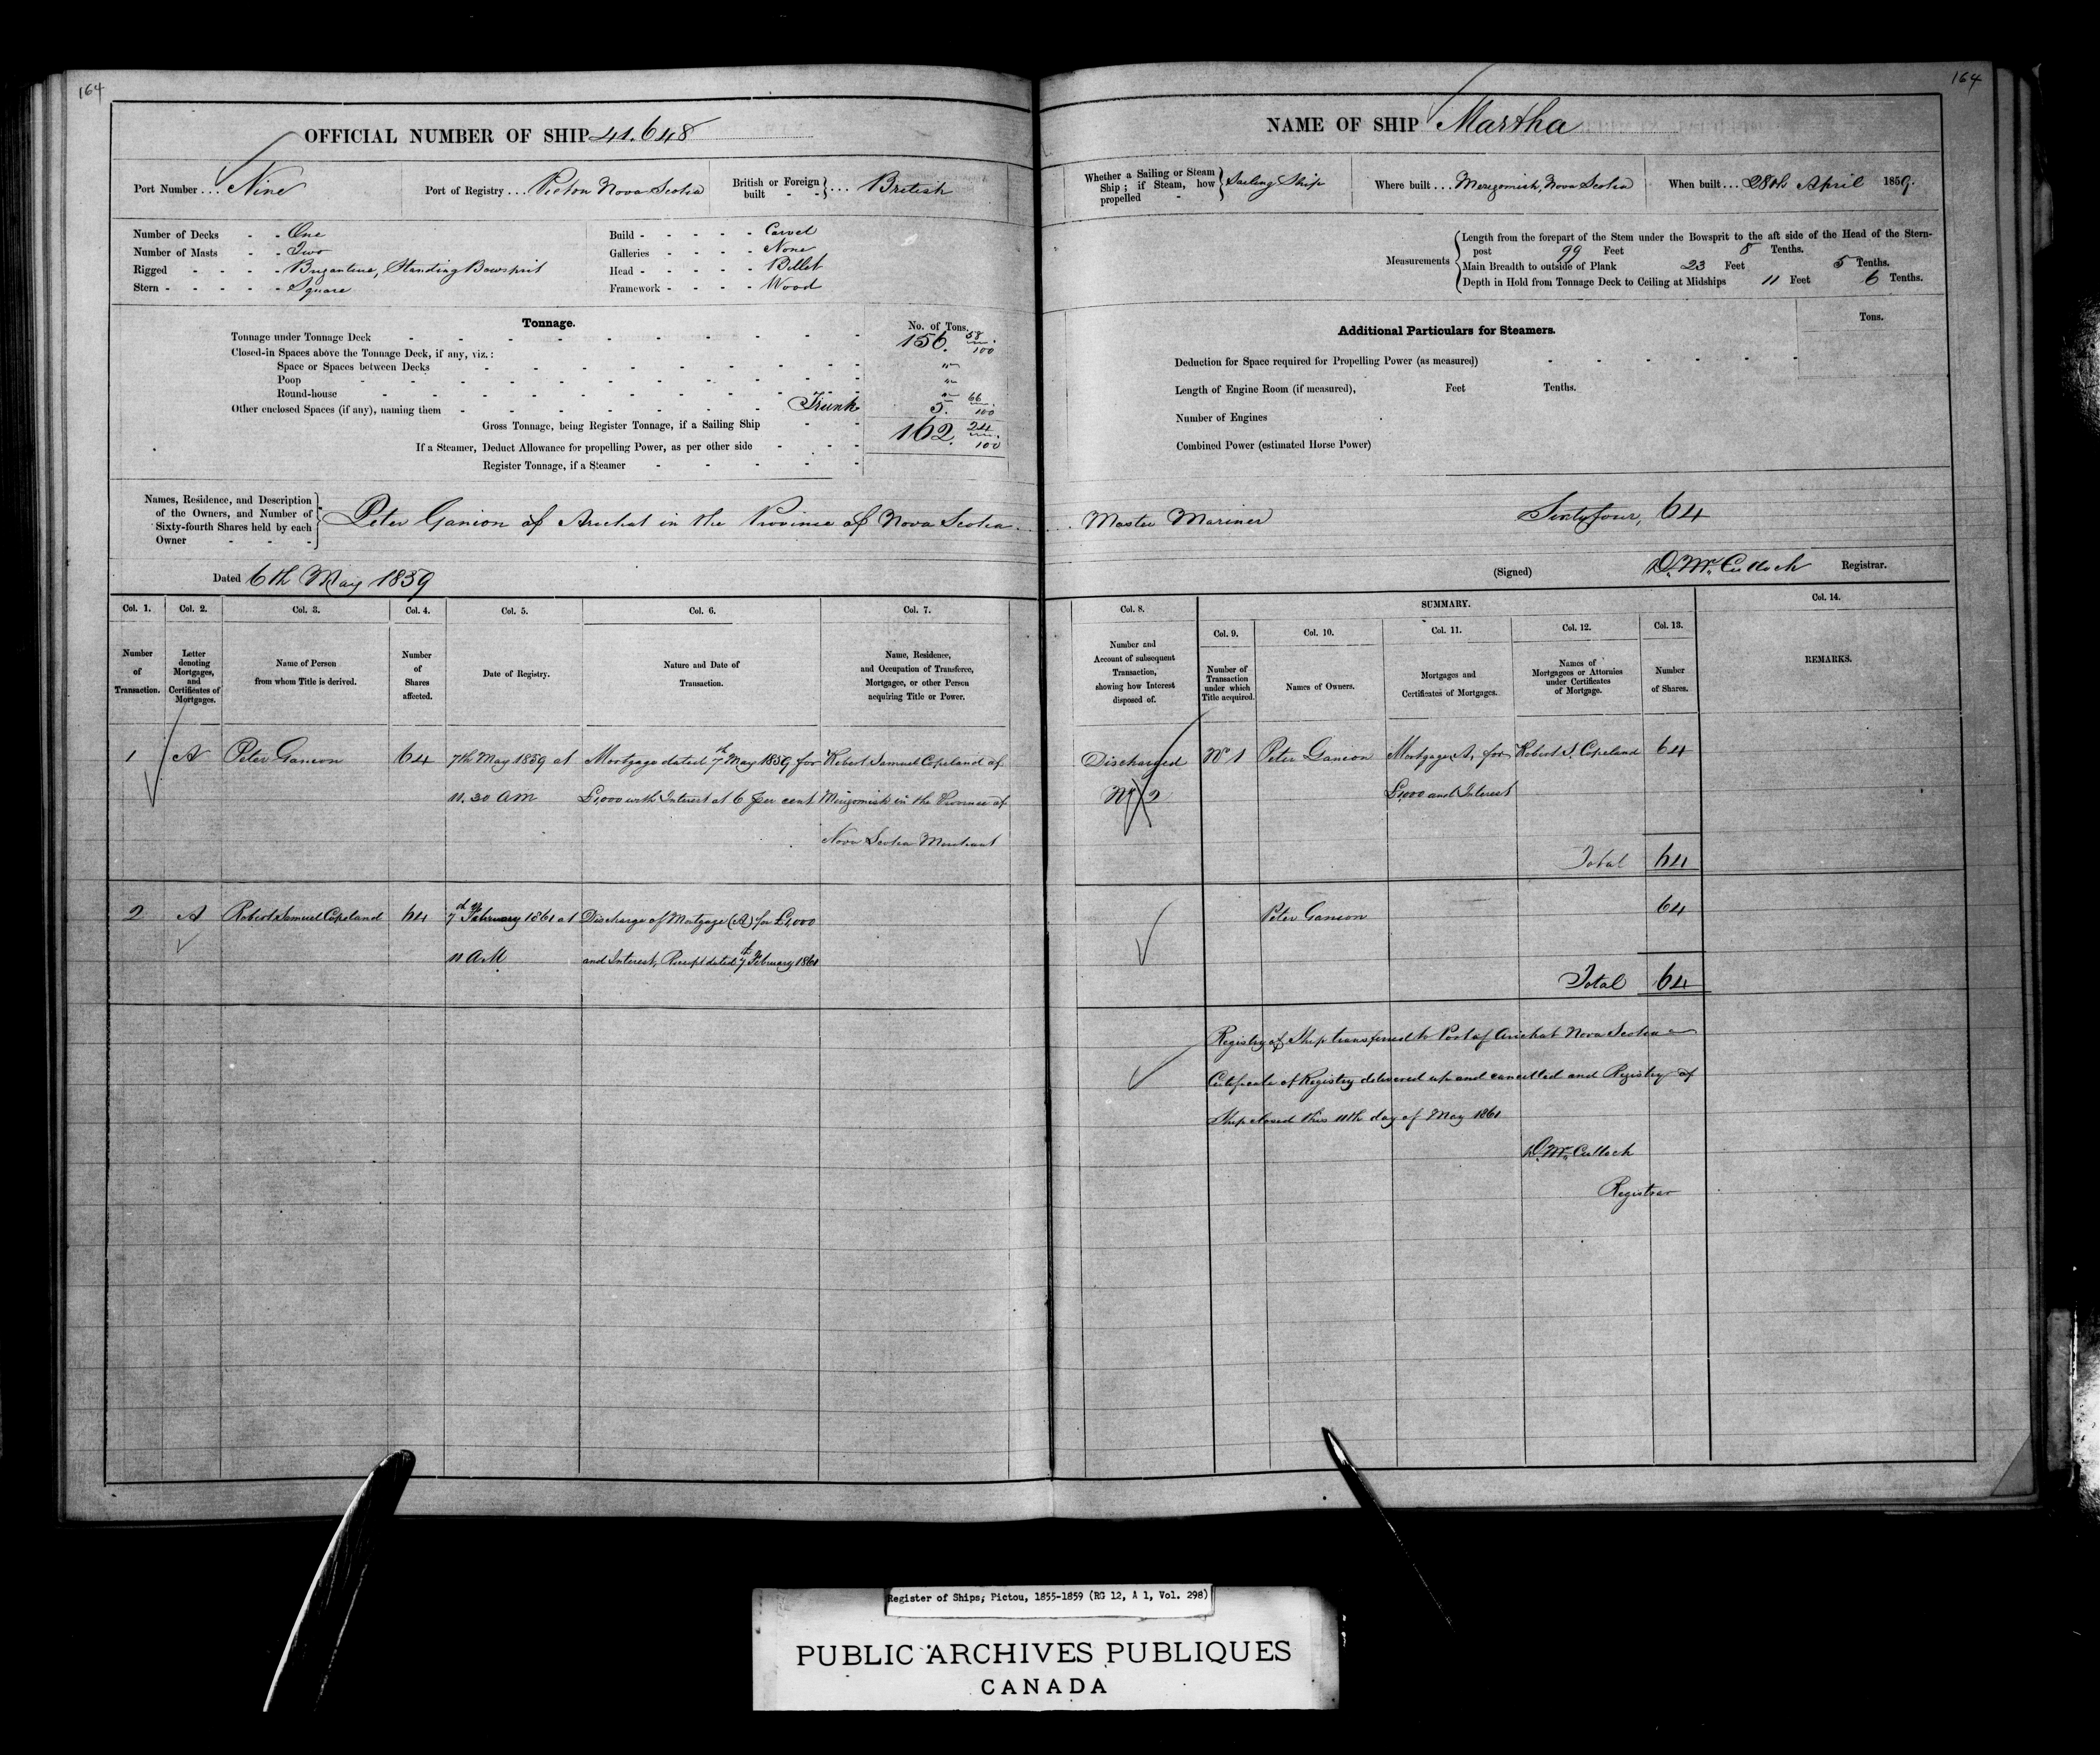 164
OFFICIAL NUMBER OF SHIP 41.648
Port Number ... Nine
Port of Registry ... Pictou Nova Scotia
British or Foreign built - - } ... British
Number of Decks - - One
Number of Masts - - Two
Rigged - - - - Brigantine, Standing Bowsprit
Stern - - - - - Square
Build - - - - - Carvel
Galleries - - - - None
Head - - - - - Billet
Framework - - - - Wood
Tonnage.
No. of Tons.
Tonnage under Tonnage Deck 156. 58/100
Closed-in Spaces above the Tonnage Deck, if any, viz.:
Space or Spaces between Decks "
Poop "
Round-house "
Other enclosed Spaces (if any), naming them Trunk 5. 66/100
Gross Tonnage, being Register Tonnage, if a Sailing Ship 162. 24/100
If a Steamer, Deduct Allowance for propelling Power, as per other side
Register Tonnage, if a Steamer
Names, Residence, and Description
of the Owners, and Number of
Sixty-fourth Shares held by each
Owner
Peter Ganion of Arichat in the Province of Nova Scotia
Dated 6th May 1859
Col. 1. Col. 2. Col. 3. Col. 4. Col. 5. Col. 6. Col. 7.
Number of Transaction.
Letter denoting Mortgages, and Certificates of Mortgages.
Name of Person from whom Title is derived.
Number of Shares affected.
Date of Registry.
Nature and Date of Transaction.
Name, Residence, and Occupation of Transferee, Mortgagee, or other Person acquiring Title or Power.
1 A Peter Ganion 64 7th May 1859 at Mortgage dated 7th May 1859 for Robert Samuel Copeland of
11.30 AM £1,000 with Interest at 6 per cent Merigomish in the Province of
Nova Scotia Merchant
2 A Robert Samuel Copeland 64 7th February 1861 at Discharge of Mortgage (A) for £1,000
11 AM and Interest, Receipt dated 7th February 1861
164
NAME OF SHIP Martha
Whether a Sailing or Steam Ship; if Steam, how propelled - } Sailing Ship
Where built ... Merigomish, Nova Scotia
When built ... 28th April 1859.
Measurements
Length from the forepart of the Stem under the Bowsprit to the aft side of the Head of the Stern-
post 99 Feet 8 Tenths.
Main Breadth to outside of Plank 23 Feet 5 Tenths.
Depth in Hold from Tonnage Deck to Ceiling at Midships 11 Feet 6 Tenths.
Additional Particulars for Steamers.
Tons.
Deduction for Space required for Propelling Power (as measured)
Length of Engine Room (if measured), Feet Tenths.
Number of Engines
Combined Power (estimated Horse Power)
Master Mariner Sixtyfour, 64
(Signed) D. McCulloch Registrar.
Col. 8. SUMMARY. Col. 14.
Col. 9. Col. 10. Col. 11. Col. 12. Col. 13.
Number and Account of subsequent Transaction, showing how Interest disposed of.
Number of Transaction under which Title acquired.
Names of Owners.
Mortgages and Certificates of Mortgages.
Names of Mortgagees or Attornies under Certificates of Mortgage.
Number of Shares.
REMARKS.
Discharged No 1 Peter Ganion Mortgage, A, for Robert S. Copeland 64
No 2 £1,000 and Interest
Total 64
Peter Ganion 64
Total 64
Registry of Ship transferred to Port of Arichat Nova Scotia
Certificate of Registry delivered up and cancelled and Registry of
Ship closed this 11th day of May 1861
D. McCulloch
Registrar
Register of Ships; Pictou, 1855-1859 (RG 12, A 1, Vol. 298)
PUBLIC ARCHIVES PUBLIQUES
CANADA